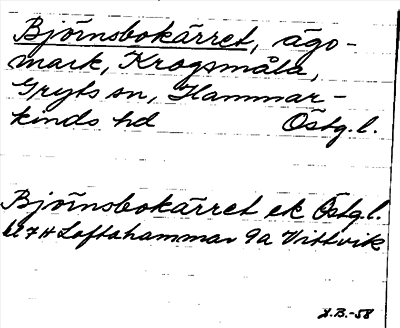 Björnsbokärret, ägo-
mark, Krogsmåla,
Gryts sn, Hammar-
kinds hd Östg. l.
Björnsbokärret ek Östg. l.
Loftahammar 9a Vittvik
J.B.-58